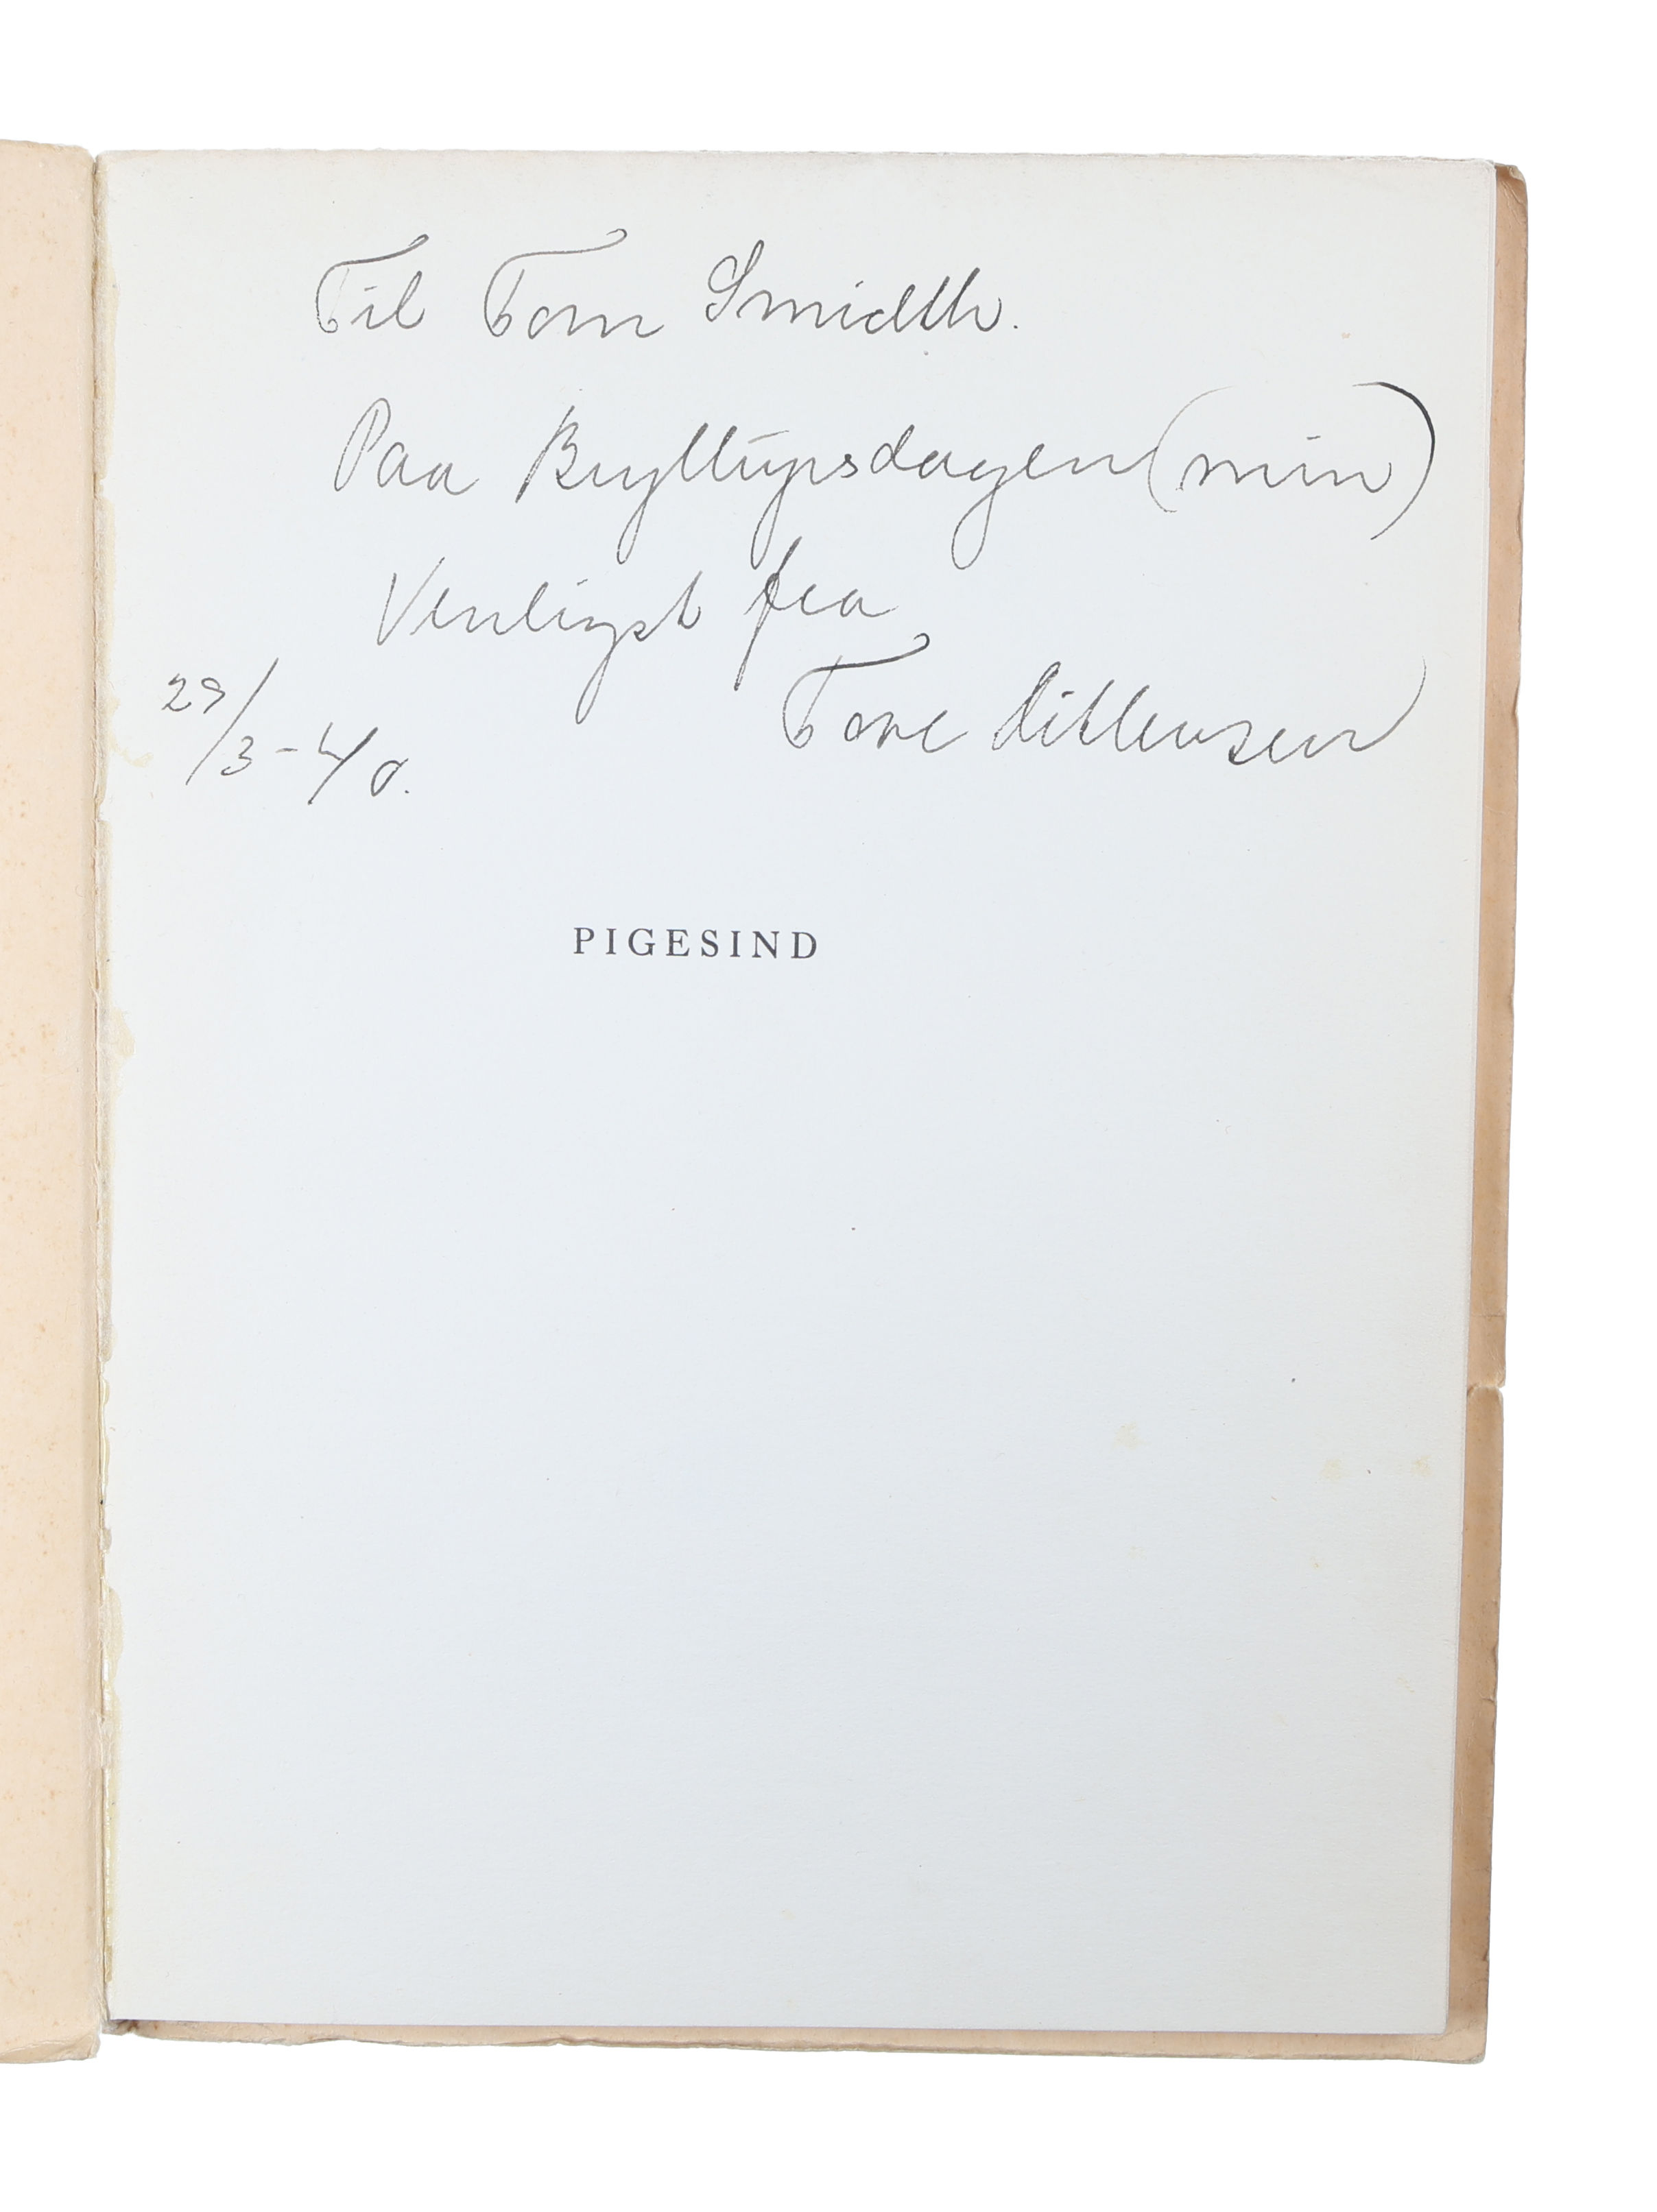 Til Tom Smidth.
Paa Bryllupsdagen (min)
Venligst fra
Tove Ditlevsen
29/3-40.
PIGESIND